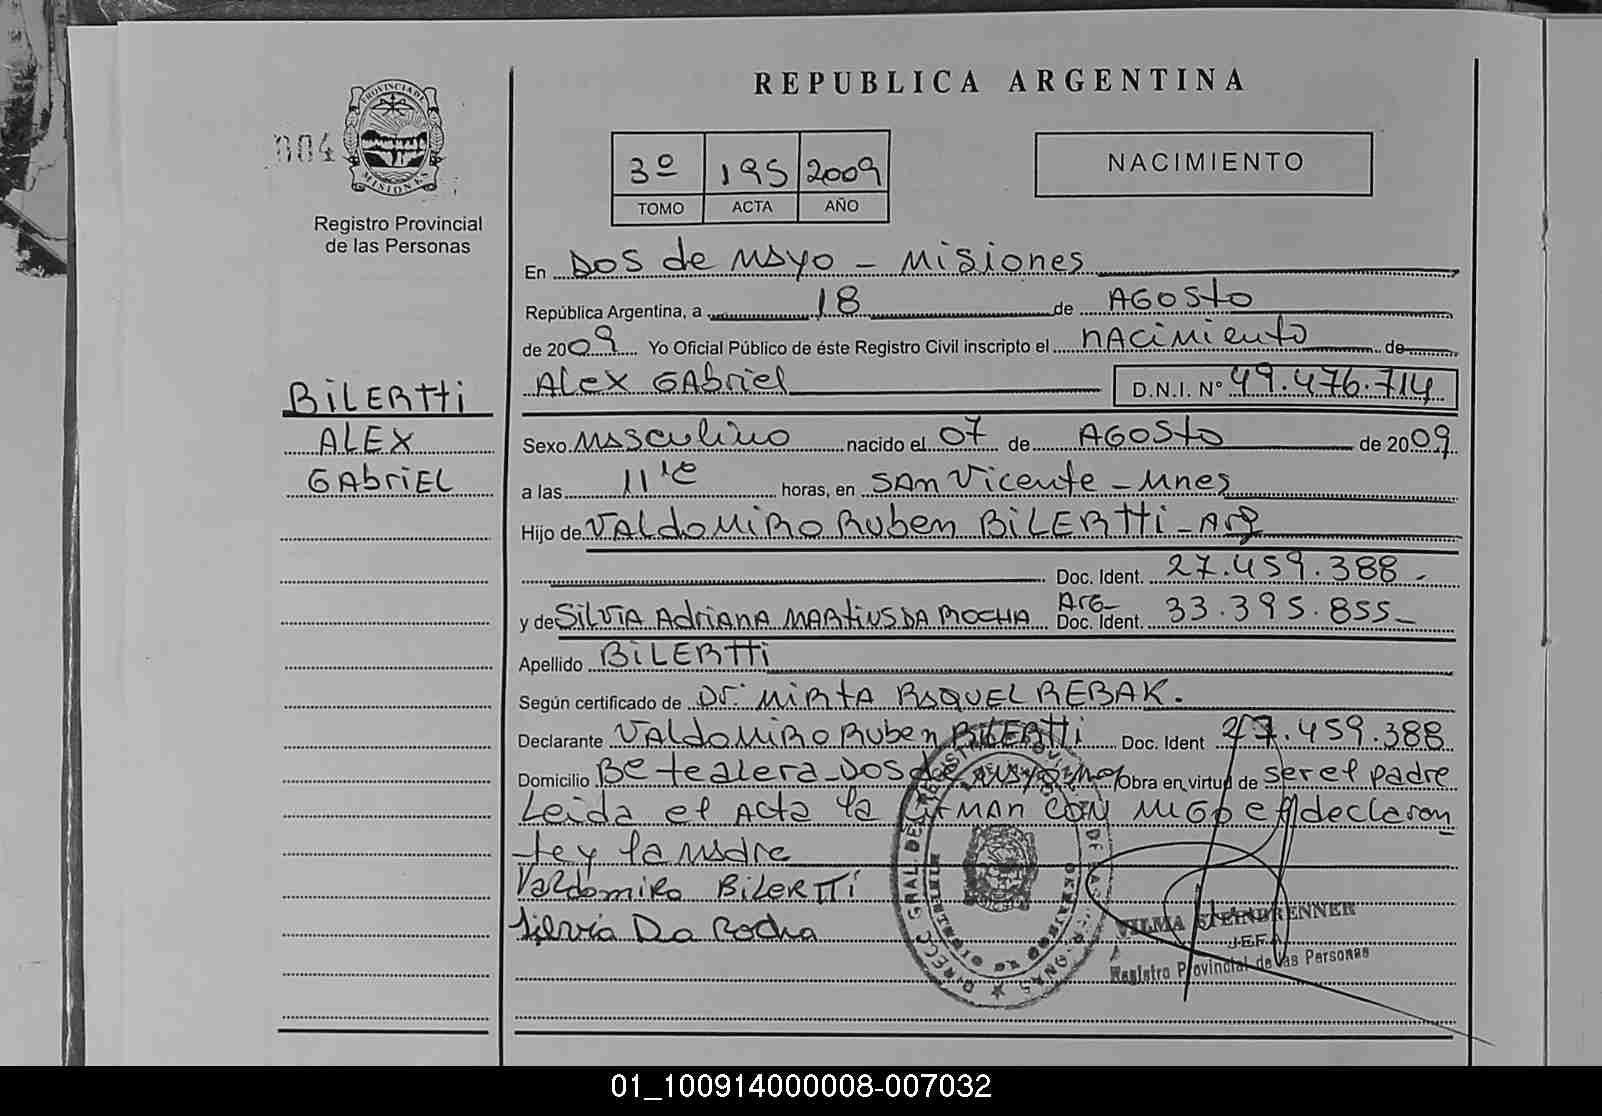 REPUBLICA ARGENTINA
004
PROVINCIA DE
MISIONES
Registro Provincial
de las Personas
3º 195 2009
TOMO ACTA AÑO
NACIMIENTO
BILERTTI
ALEX
GABRIEL
En DOS de MAYO - Misiones
República Argentina, a 18 de AGOSTO
de 2009 Yo Oficial Público de éste Registro Civil inscripto el NACIMIENTO de
ALEX GABRIEL D.N.I. Nº 49.476.714
Sexo MASCULINO nacido el 07 de AGOSTO de 2009
a las 11 horas, en SAN VICENTE - Mnes
Hijo de VALDOMIRO RUBEN BILERTTI - Arg
Doc. Ident. 27.459.388 -
y de SILVIA Adriana MARTINS DA ROCHA Arg- Doc. Ident. 33.395.855 -
Apellido BILERTTI
Según certificado de Dr: MIRTA RAQUEL REBAK.
Declarante VALDOMIRO RUBEN BILERTTI Doc. Ident 27.459.388
Domicilio Bº tealera - DOS de MAYO Obra en virtud de ser el padre
Leida el Acta la firman con migo el declaran
te y la madre
Valdomiro BILERTTI
Silvia Da Rocha
VILMA STEINBRENNER
JEFA
Registro Provincial de las Personas
01_100914000008-007032